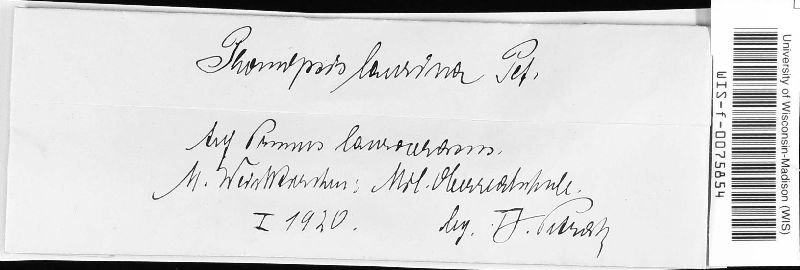 Phomopsis laurina Pet.
Auf Prunus laurocerasus.
M. Weisskirchen: Mil. Oberrealschule.
I 1920. leg. F. Petrak
University of Wisconsin-Madison (WIS)
WIS-f-0075854